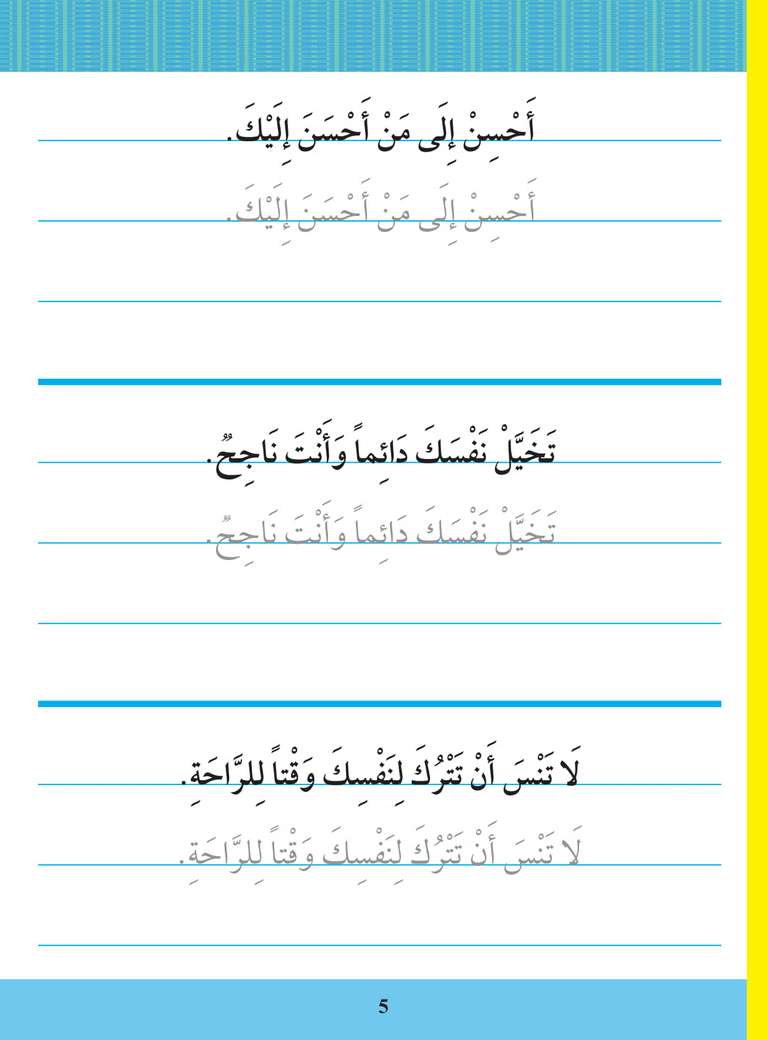 أَحْسِنْ إِلَى مَنْ أَحْسَنَ إِلَيْكَ.
أَحْسِنْ إِلَى مَنْ أَحْسَنَ إِلَيْكَ.
تَخَيَّلْ نَفْسَكَ دَائِماً وَأَنْتَ نَاجِحٌ.
تَخَيَّلْ نَفْسَكَ دَائِماً وَأَنْتَ نَاجِحٌ.
لَا تَنْسَ أَنْ تَتْرُكَ لِنَفْسِكَ وَقْتاً لِلرَّاحَةِ.
لَا تَنْسَ أَنْ تَتْرُكَ لِنَفْسِكَ وَقْتاً لِلرَّاحَةِ.
5